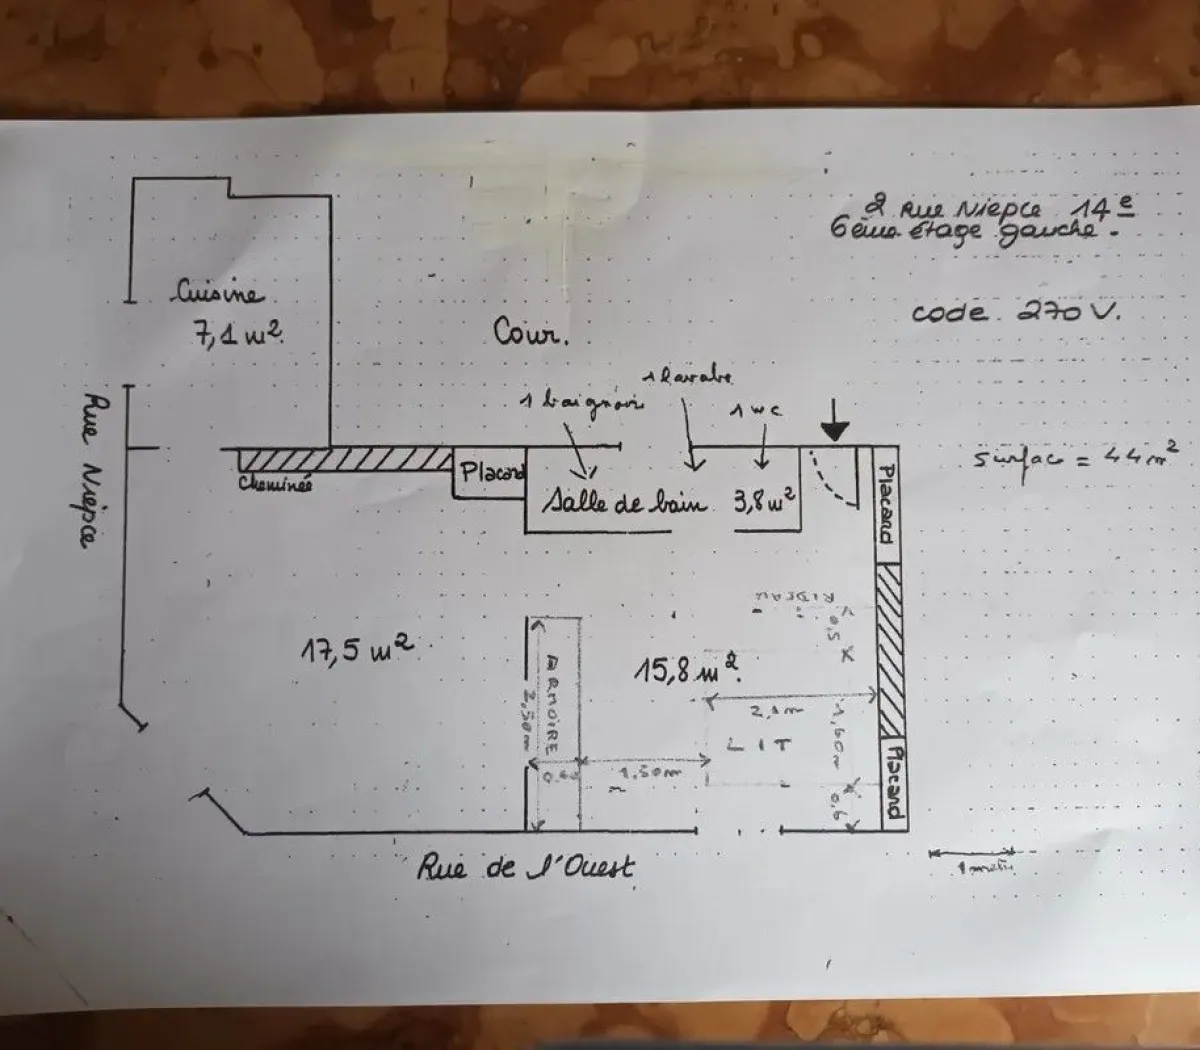 2 Rue Niepce 14e
6ème étage gauche.
code 270 V.
Cuisine
7,1 m²
Cour.
1 lavabo
1 baignoire
1 wc
Surface = 44 m²
Rue Niepce
Cheminée
Placard
Salle de bain 3,8 m²
Placard
RIDEAU
0,5
17,5 m²
15,8 m²
ARMOIRE
2,50m
2,1m
LIT
1,60m
0,60
1,50m
0,6
Placard
Rue de l'Ouest
1 mètre